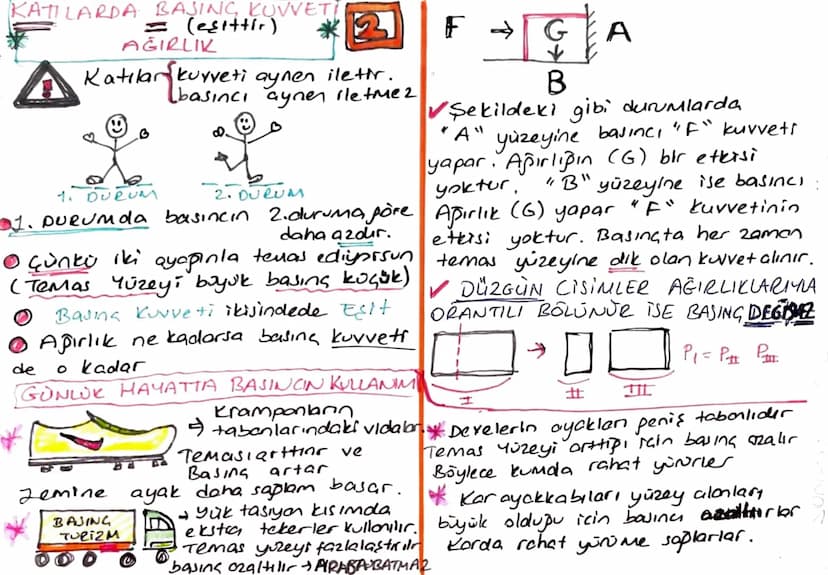 KATILARDA BASINÇ KUVVETİ
= (eşittir)
AĞIRLIK
2
Katılar kuvveti aynen iletir.
basıncı aynen iletmez
!
1. DURUM 2. DURUM
1. DURUMda basıncın 2.duruma göre
daha azdır.
Çünkü iki ayağınla temas ediyorsun
(Temas yüzeyi büyük basınç küçük)
Basınç kuvveti ikisindede Eşit
Ağırlık ne kadarsa basınç kuvveti
de o kadar
GÜNLÜK HAYATTA BASINCIN KULLANIMI
Kramponların
→ tabanlarındaki vidalar
Teması arttırır ve
Basınç artar
Zemine ayak daha sağlam basar.
BASINÇ
TURİZM
→ yük taşıyan kısımda
ekstra tekerler kullanılır.
Temas yüzeyi fazlalaştırılır
basınç azaltılır → ARABA BATMAZ
F → G A
B
✓ Şekildeki gibi durumlarda
"A" yüzeyine basıncı "F" kuvveti
yapar. Ağırlığın (G) bir etkisi
yoktur. "B" yüzeyine ise basıncı
Ağırlık (G) yapar "F" kuvvetinin
etkisi yoktur. Basınçta her zaman
temas yüzeyine dik olan kuvvet alınır.
✓ DÜZGÜN CİSİMLER AĞIRLIKLARIYLA
ORANTILI BÖLÜNÜR İSE BASINÇ DEĞİŞMEZ
→ P_I = P_II P_III
I II III
* Develerin ayakları geniş tabanlıdır
Temas yüzeyi arttığı için basınç azalır
Böylece kumda rahat yürürler
* Kar ayakkabıları yüzey alanları
büyük olduğu için basıncı azaltırlar
Karda rahat yürüme sağlarlar.